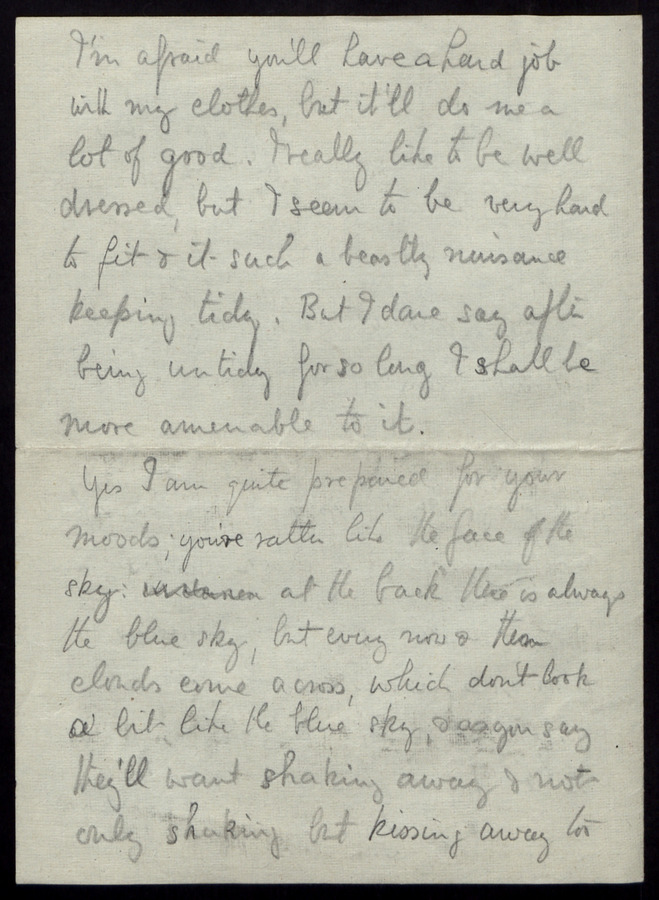 I'm afraid you'll have a hard job
with my clothes, but it'll do me a
lot of good. I really like to be well
dressed, but I seem to be very hard
to fit & it such a beastly nuisance
keeping tidy. But I dare say after
being untidy for so long I shall be
more amenable to it.
Yes I am quite prepared for your
moods; you're rather like the face of the
sky: at the back there is always
the blue sky, but every now & then
clouds come across, which don't look
a bit like the blue sky, & as you say
they'll want shaking away & not
only shaking but kissing away too